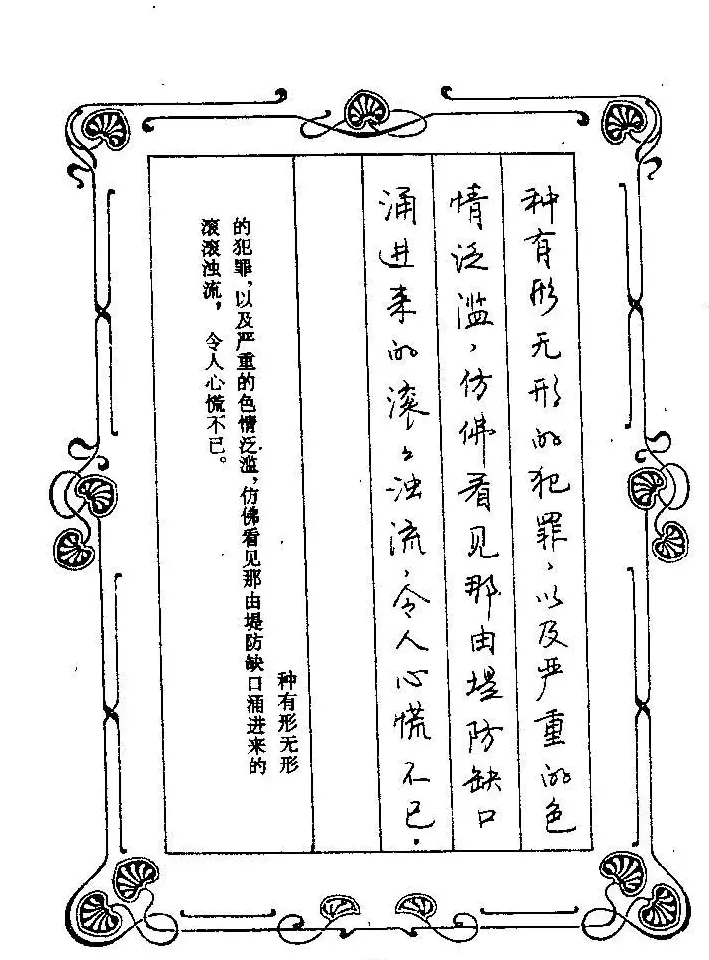 种有形无形的犯罪，以及严重的色
情泛滥，仿佛看见那由堤防缺口
涌进来的滚々浊流，令人心慌不已．
种有形无形
的犯罪，以及严重的色情泛滥，仿佛看见那由堤防缺口涌进来的
滚滚浊流，令人心慌不已。